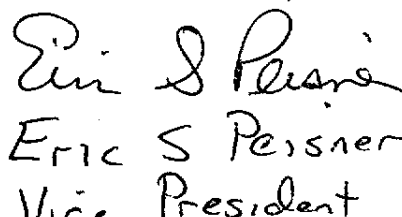 Eric S Peisner
Eric S Peisner
Vice President